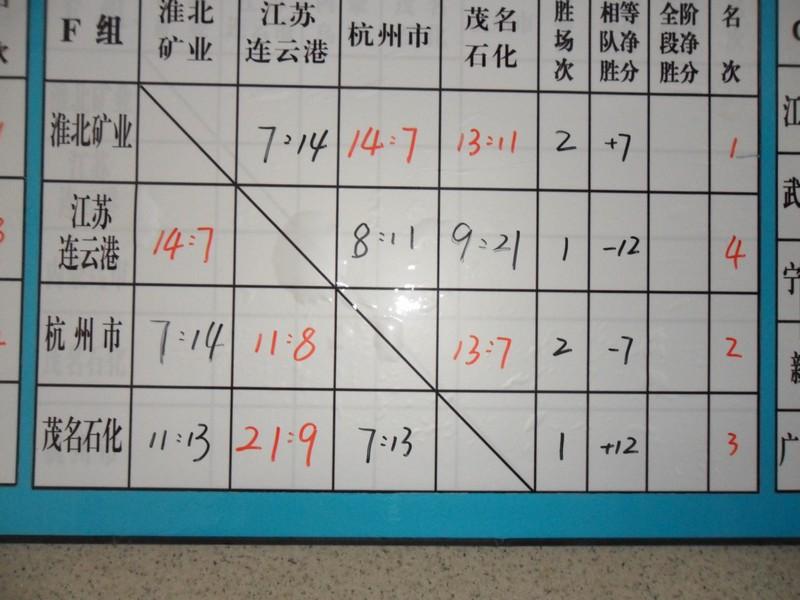 F 组 淮北矿业 江苏连云港 杭州市 茂名石化 胜场次 相等队净胜分 全阶段净胜分 名次
淮北矿业 7:14 14:7 13:11 2 +7 1
江苏连云港 14:7 8:11 9:21 1 -12 4
杭州市 7:14 11:8 13:7 2 -7 2
茂名石化 11:13 21:9 7:13 1 +12 3
江
武
宁
新
广